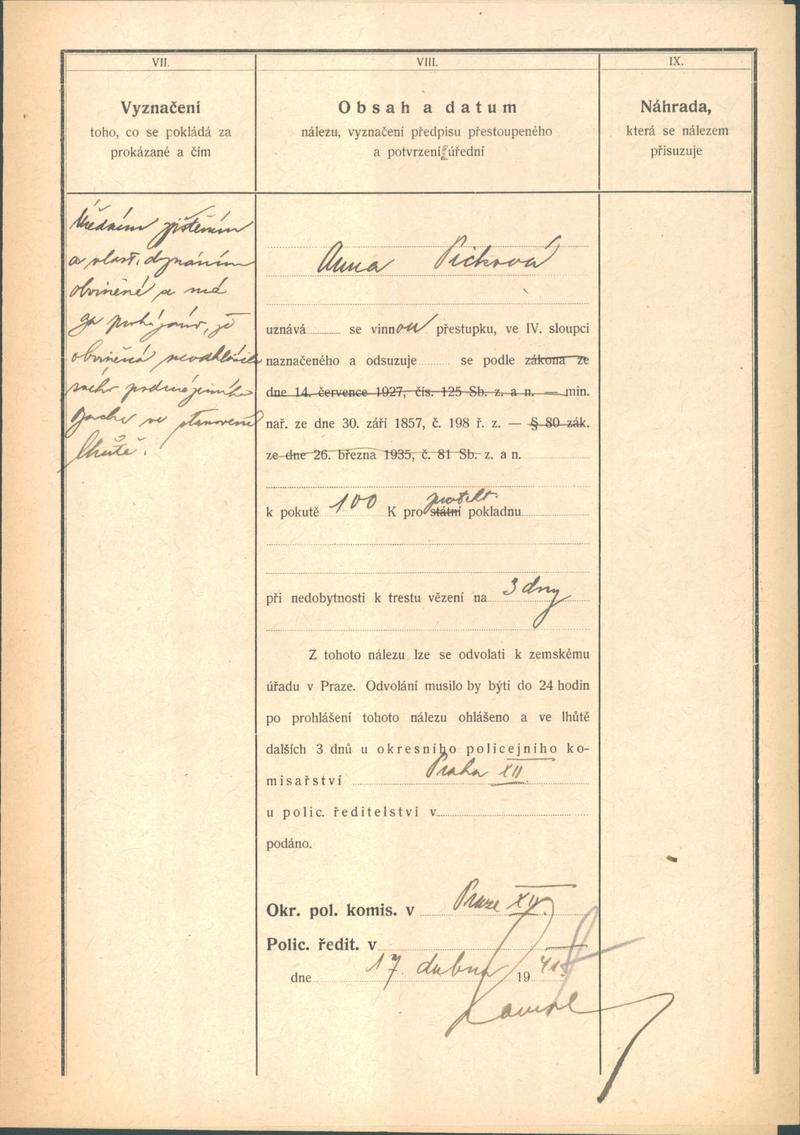 VII.
Vyznačení
toho, co se pokládá za
prokázané a čím
Úředním zjištěním
a vlast. doznáním
obviněné a má
za prokázáno, že
obviněná neodhlásila
svého podnájemníka
ve stanovené
lhůtě.
VIII.
Obsah a datum
nálezu, vyznačení předpisu přestoupeného
a potvrzení úřední
Anna Picková
uznává se vinnou přestupku, ve IV. sloupci
naznačeného a odsuzuje se podle zákona ze
dne 14. července 1927, čís. 125 Sb. z. a n. — min.
nař. ze dne 30. září 1857, č. 198 ř. z. — § 80 zák.
ze dne 26. března 1935, č. 81 Sb. z. a n.
protekt.
k pokutě 100 K pro státní pokladnu
při nedobytnosti k trestu vězení na 3 dny
Z tohoto nálezu lze se odvolati k zemskému
úřadu v Praze. Odvolání musilo by býti do 24 hodin
po prohlášení tohoto nálezu ohlášeno a ve lhůtě
dalších 3 dnů u okresního policejního ko-
misařství Praha XII.
u polic. ředitelství v
podáno.
Okr. pol. komis. v Praze XII.
Polic. ředit. v
dne 17. dubna 1941
IX.
Náhrada,
která se nálezem
přisuzuje